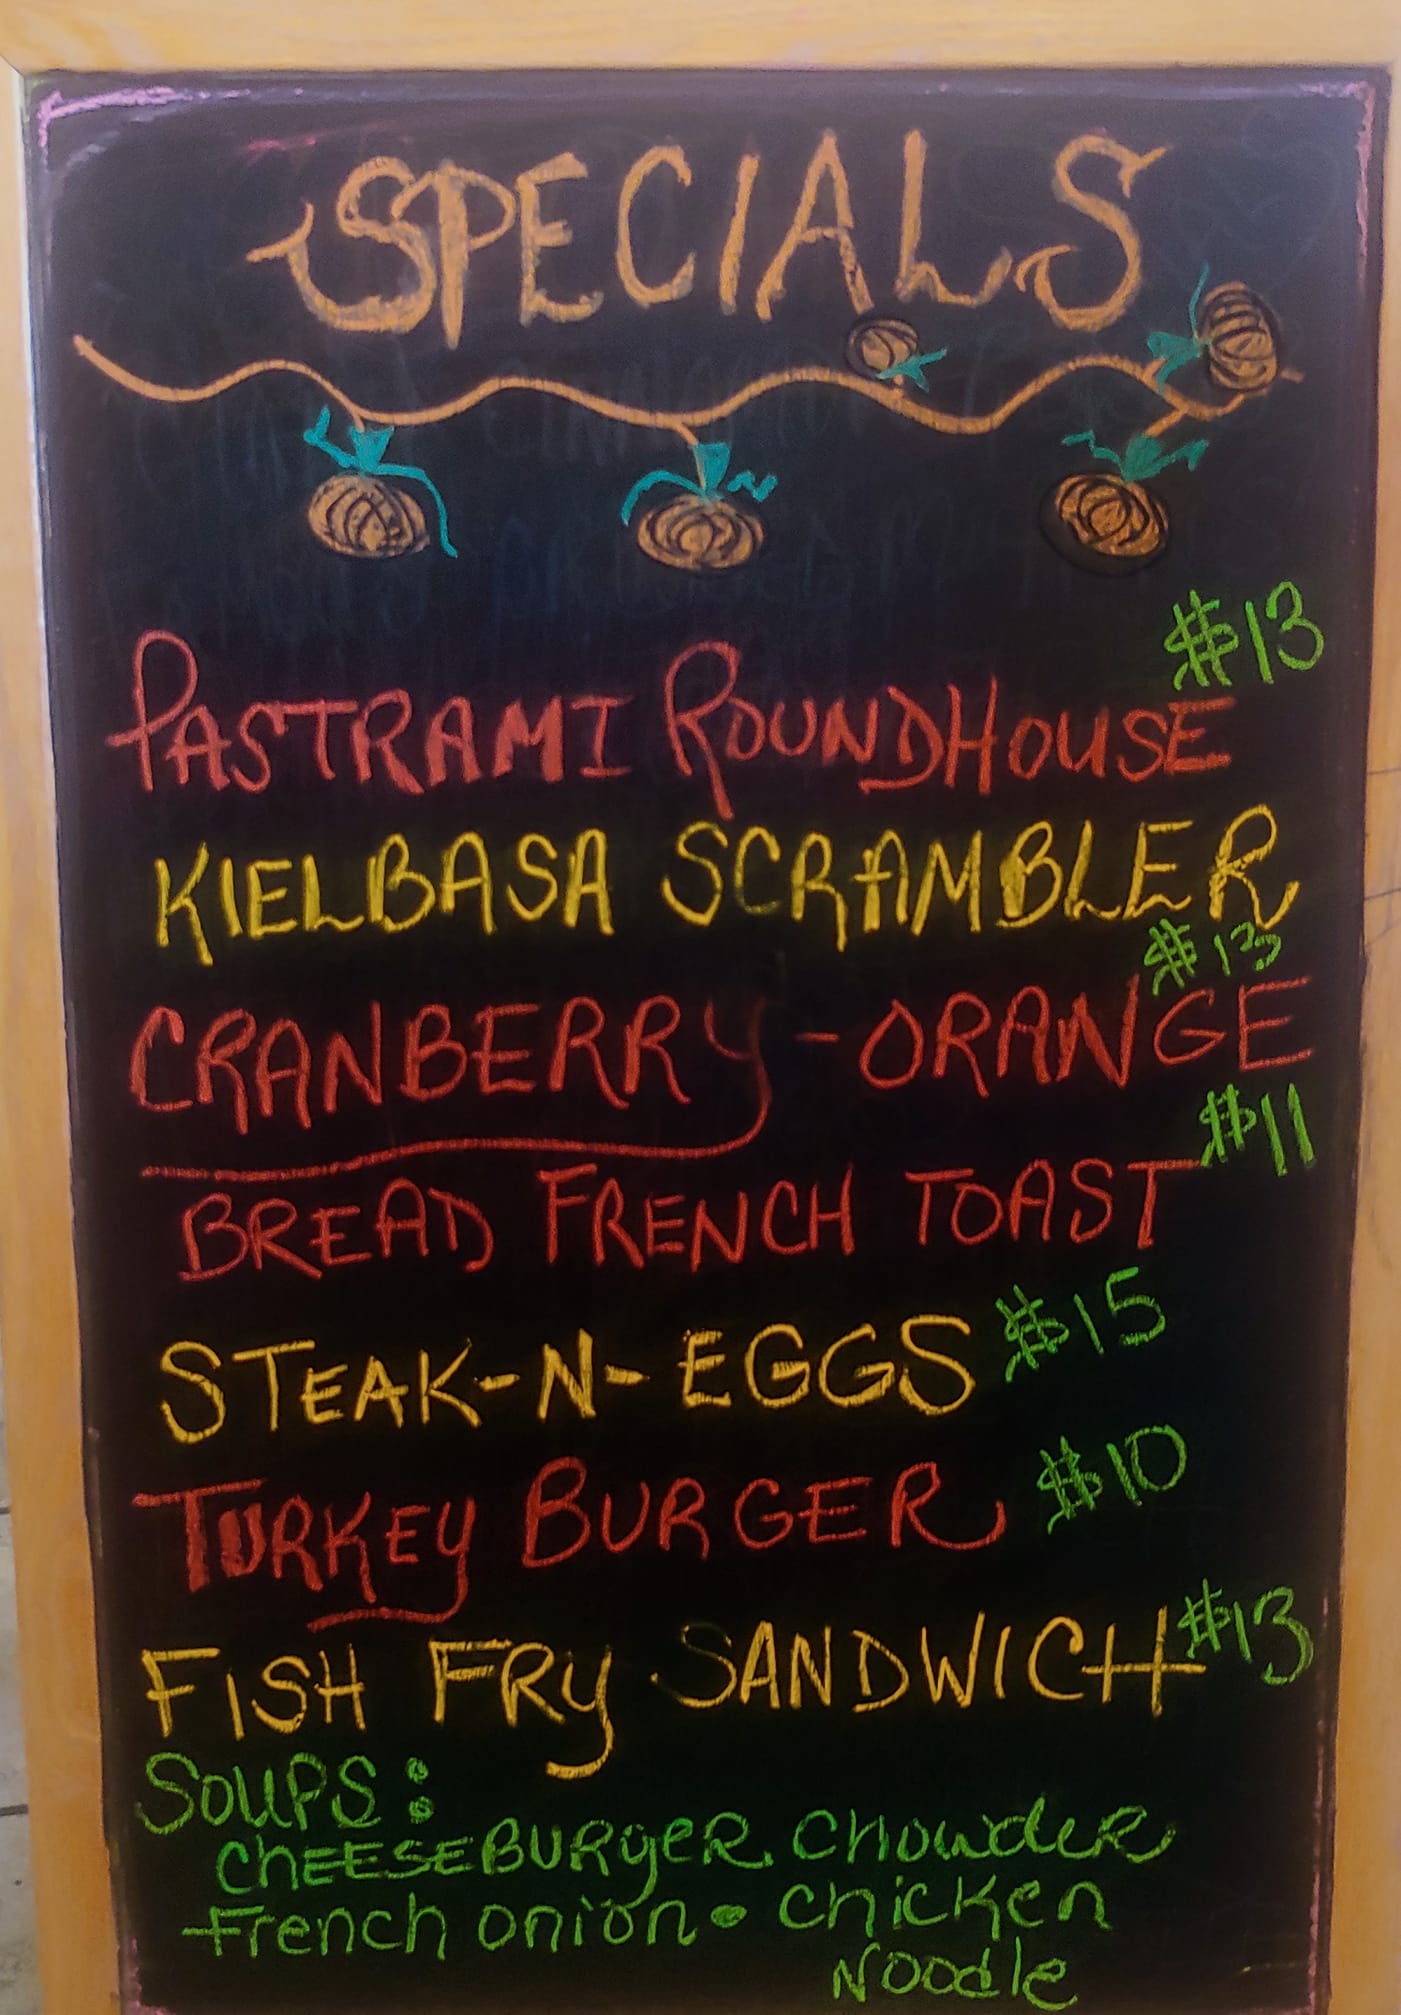 SPECIALS
$13
PASTRAMI ROUNDHOUSE
KIELBASA SCRAMBLER
$13
CRANBERRY-ORANGE
$11
BREAD FRENCH TOAST
STEAK-N-EGGS $15
TURKEY BURGER $10
FISH FRY SANDWICH $13
SOUPS:
CHEESEBURGER CHOWDER
French onion • Chicken
Noodle